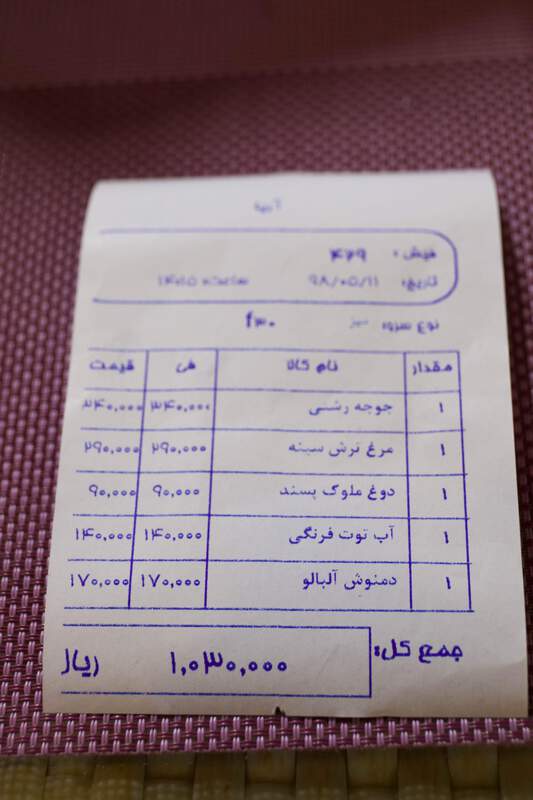 فیش: ۴۶۹
تاریخ: ۹۸/۰۵/۱۱ ساعت: ۱۴:۰۵
نوع سرو: میز f۳۰
مقدار نام کالا فی قیمت
۱ جوجه رشتی ۳۴۰,۰۰۰ ۳۴۰,۰۰۰
۱ مرغ ترش سینه ۲۹۰,۰۰۰ ۲۹۰,۰۰۰
۱ دوغ ملوک پسند ۹۰,۰۰۰ ۹۰,۰۰۰
۱ آب توت فرنگی ۱۴۰,۰۰۰ ۱۴۰,۰۰۰
۱ دمنوش آلبالو ۱۷۰,۰۰۰ ۱۷۰,۰۰۰
جمع کل: ۱,۰۳۰,۰۰۰ ریال